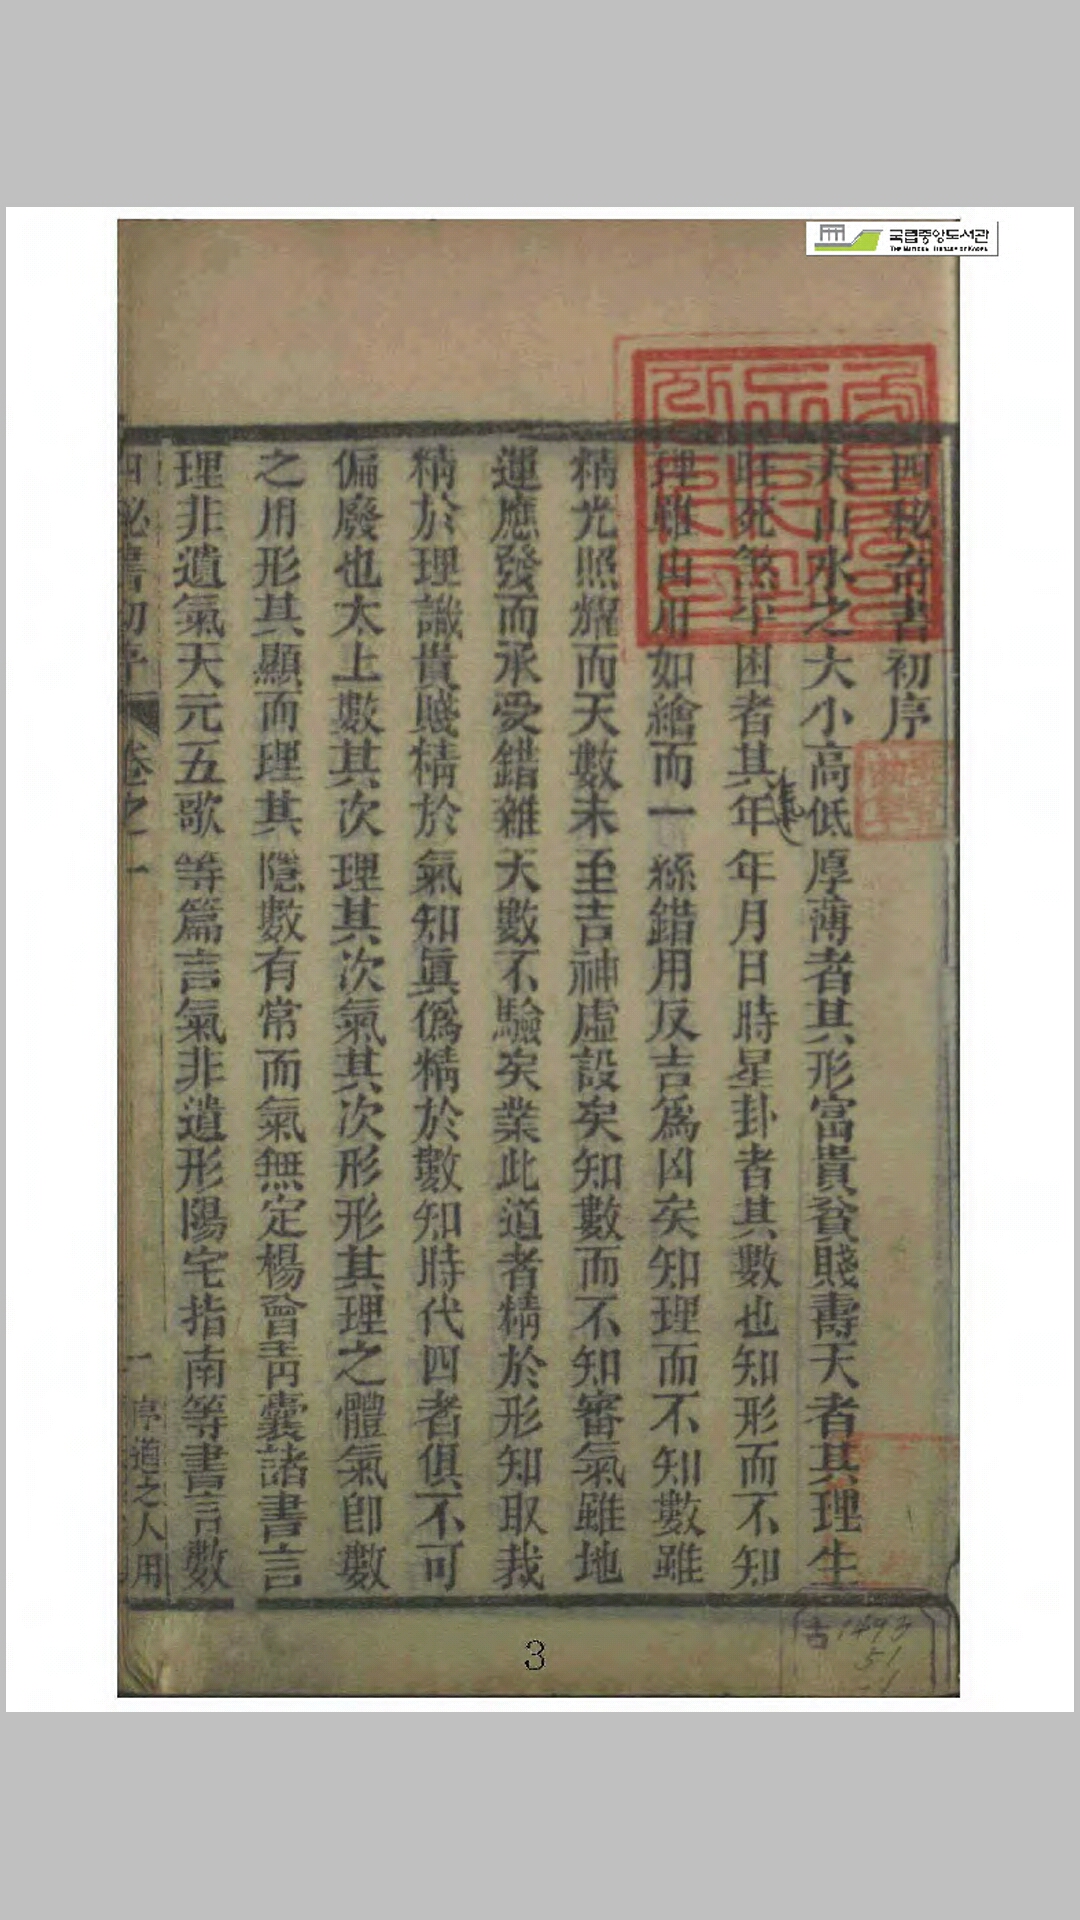 국립중앙도서관
THE NATIONAL LIBRARY OF KOREA
四秘全書初序
夫山水之大小高低厚薄者其形富貴貧賤壽夭者其理生
旺死煞平困者其年年月日時星卦者其數也知形而不知
氣
理雖山川如繪而一絲錯用反吉爲凶矣知理而不知數雖
精光照耀而天數未至吉神虛設矣知數而不知審氣雖地
運應發而承受錯雜天數不驗矣業此道者精於形知取裁
精於理識貴賤精於氣知眞僞精於數知時代四者俱不可
偏廢也太上數其次理其次氣其次形形其理之體氣卽數
之用形其顯而理其隱數有常而氣無定楊曾靑囊諸書言
理非遺氣天元五歌等篇言氣非遺形陽宅指南等書言數
四秘書初序 卷之一 一 序道之人用
古1493
51
-1
3